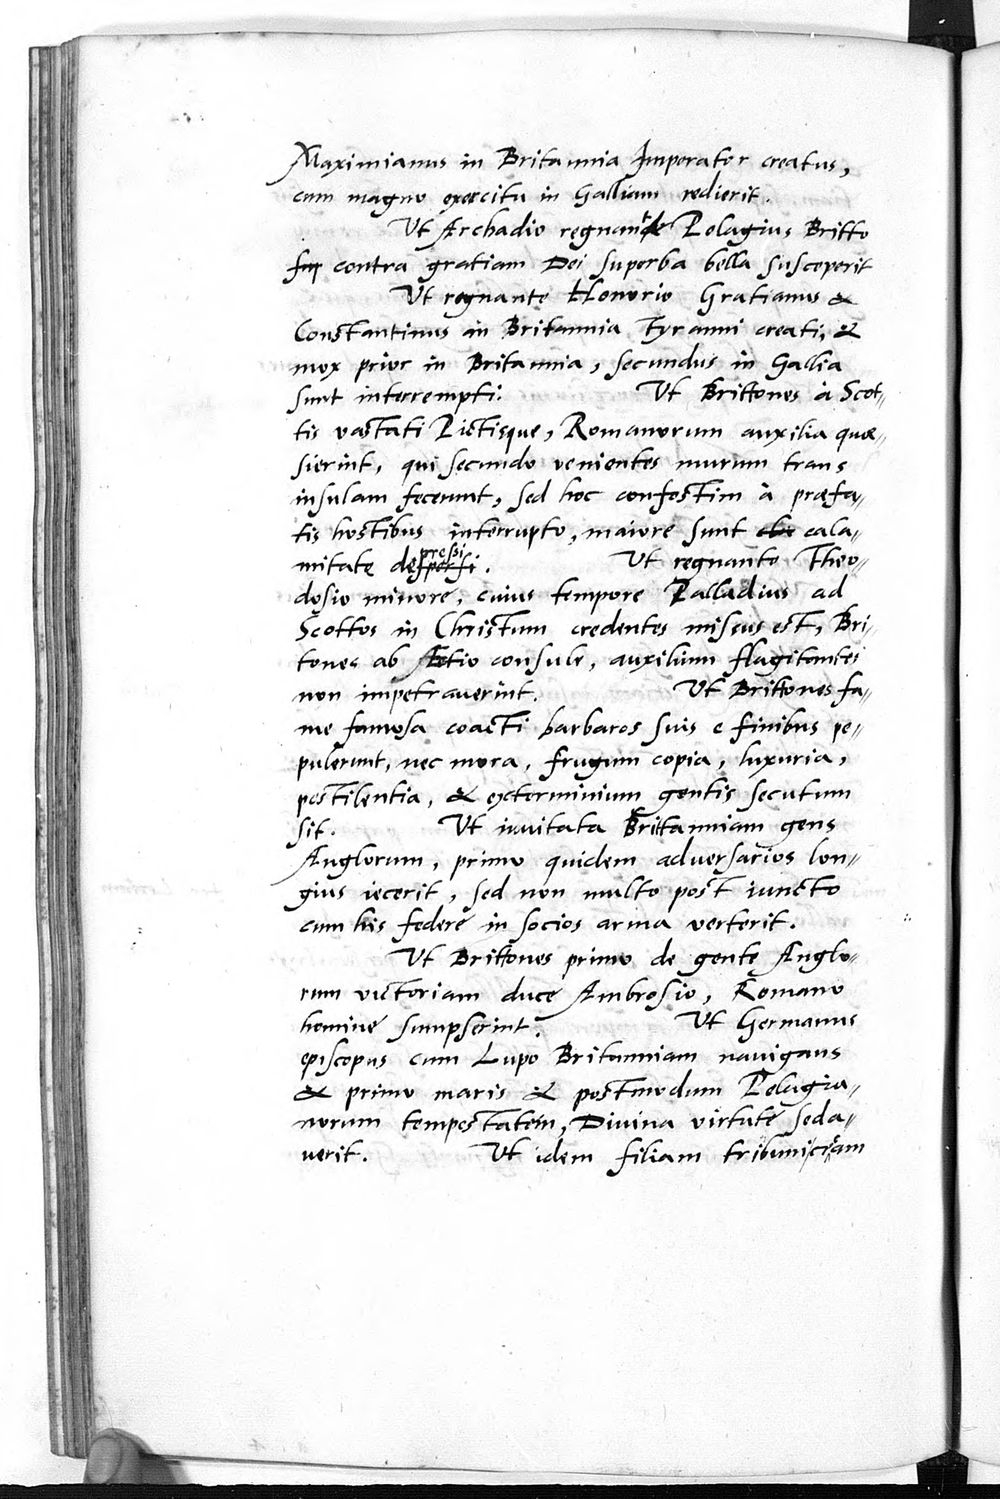 Maximianus in Britannia Imperator creatus,
cum magno exercitu in Galliam redierit.
Ut Archadio regnante Pelagius Britto
sup contra gratiam Dei superba bella susceperit
Ut regnante Honorio Gratianus &
Constantinus in Britannia Tyranni creati, &
mox prior in Britannia, secundus in Gallia
sunt interrempti. Ut Brittones à Scot-
tis vastati Pictisque, Romanorum auxilia quæ-
sierint, qui secundo venientes murum trans
insulam fecerunt, sed hoc confestim à præfa-
tis hostibus interrupto, maiore sunt cala-
pressi
mitate desperfi. Ut regnante Theo-
dosio minore, cuius tempore Palladius ad
Scottos in Christum credentes missus est, Bri-
tones ab Aetio consule, auxilium flagitantes
non impetraverint. Ut Brittones fa-
me famosa coacti barbaros suis e finibus pe-
pulerunt, nec mora, frugum copia, luxuria,
pestilentia, & exterminium gentis secutum
sit. Ut invitata Brittanniam gens
Anglorum, primo quidem adversarios lon-
gius iecerit, sed non multo post iuncto
cum his federe in socios arma verterit.
Ut Brittones primo de gente Anglo-
rum victoriam duce Ambrosio, Romano
homine sumpserint. Ut Germanus
episcopus cum Lupo Britanniam navigans
& primo maris & postmodum Pelagia-
norum tempestatem, Divina virtute seda-
verit. Ut idem filiam tribuniciam